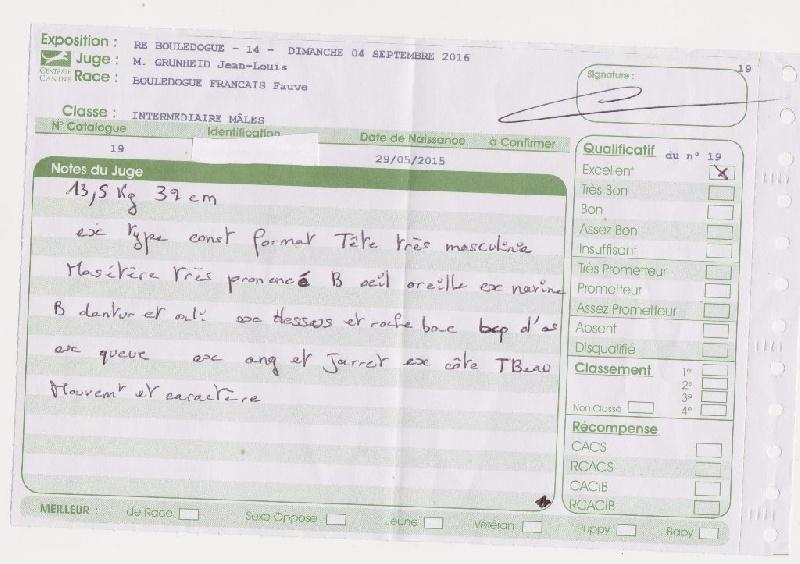 Exposition : RE BOULEDOGUE - 14 - DIMANCHE 04 SEPTEMBRE 2016
Juge : M. GRUNHEID Jean-Louis
CENTRALE CANINE Race : BOULEDOGUE FRANCAIS Fauve
19
Signature :
Classe : INTERMEDIAIRE MÂLES
N° Catalogue Identification Date de Naissance à Confirmer
19 29/05/2015
Notes du Juge
13,5 Kg 39 cm
exc type const format Tête très masculine
Masétère très prononcé B oeil oreille ex narine
B dentur et outi exc dessus et roche bouc bcp d'os
ex queue exc ang et Jarret ex côte TBeau
Mouvemt et caractère
Qualificatif du n° 19
Excellent X
Très Bon
Bon
Assez Bon
Insuffisant
Très Prometteur
Prometteur
Assez Prometteur
Absent
Disqualifié
Classement 1°
2°
3°
Non Classé 4°
Récompense
CACS
RCACS
CACIB
RCACIB
MEILLEUR : de Race Sexe Opposé Jeune Vétéran Puppy Baby
19